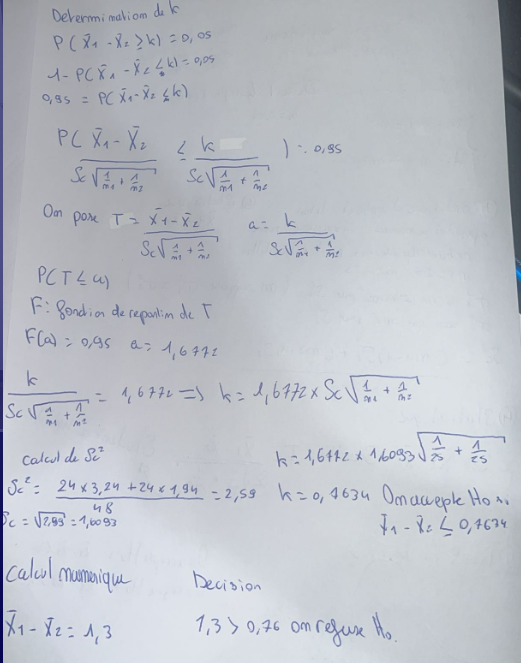 Determination de k
P(X̄1 - X̄2 ≥ k) = 0,05
1 - P(X̄1 - X̄2 ≤ k) = 0,05
0,95 = P(X̄1 - X̄2 ≤ k)
P( (X̄1 - X̄2) / (Sc√(1/m1 + 1/m2)) ≤ k / (Sc√(1/m1 + 1/m2)) ) = 0,95
On pose T = (X̄1 - X̄2) / (Sc√(1/m1 + 1/m2)) a = k / (Sc√(1/m1 + 1/m2))
P(T ≤ a)
F: fonction de repartion de T
F(a) = 0,95 a = 1,6772
k / (Sc√(1/m1 + 1/m2)) = 1,6772 => k = 1,6772 x Sc√(1/m1 + 1/m2)
calcul de Sc²
Sc² = (24 x 3,24 + 24 x 1,94) / 48 = 2,59
Sc = √2,59 = 1,6093
k = 1,6772 x 1,6093√(1/25 + 1/25)
k = 0,7634 On accepte Ho si
X̄1 - X̄2 ≤ 0,7634
Calcul numerique
X̄1 - X̄2 = 1,3
Decision
1,3 > 0,76 on refuse Ho.